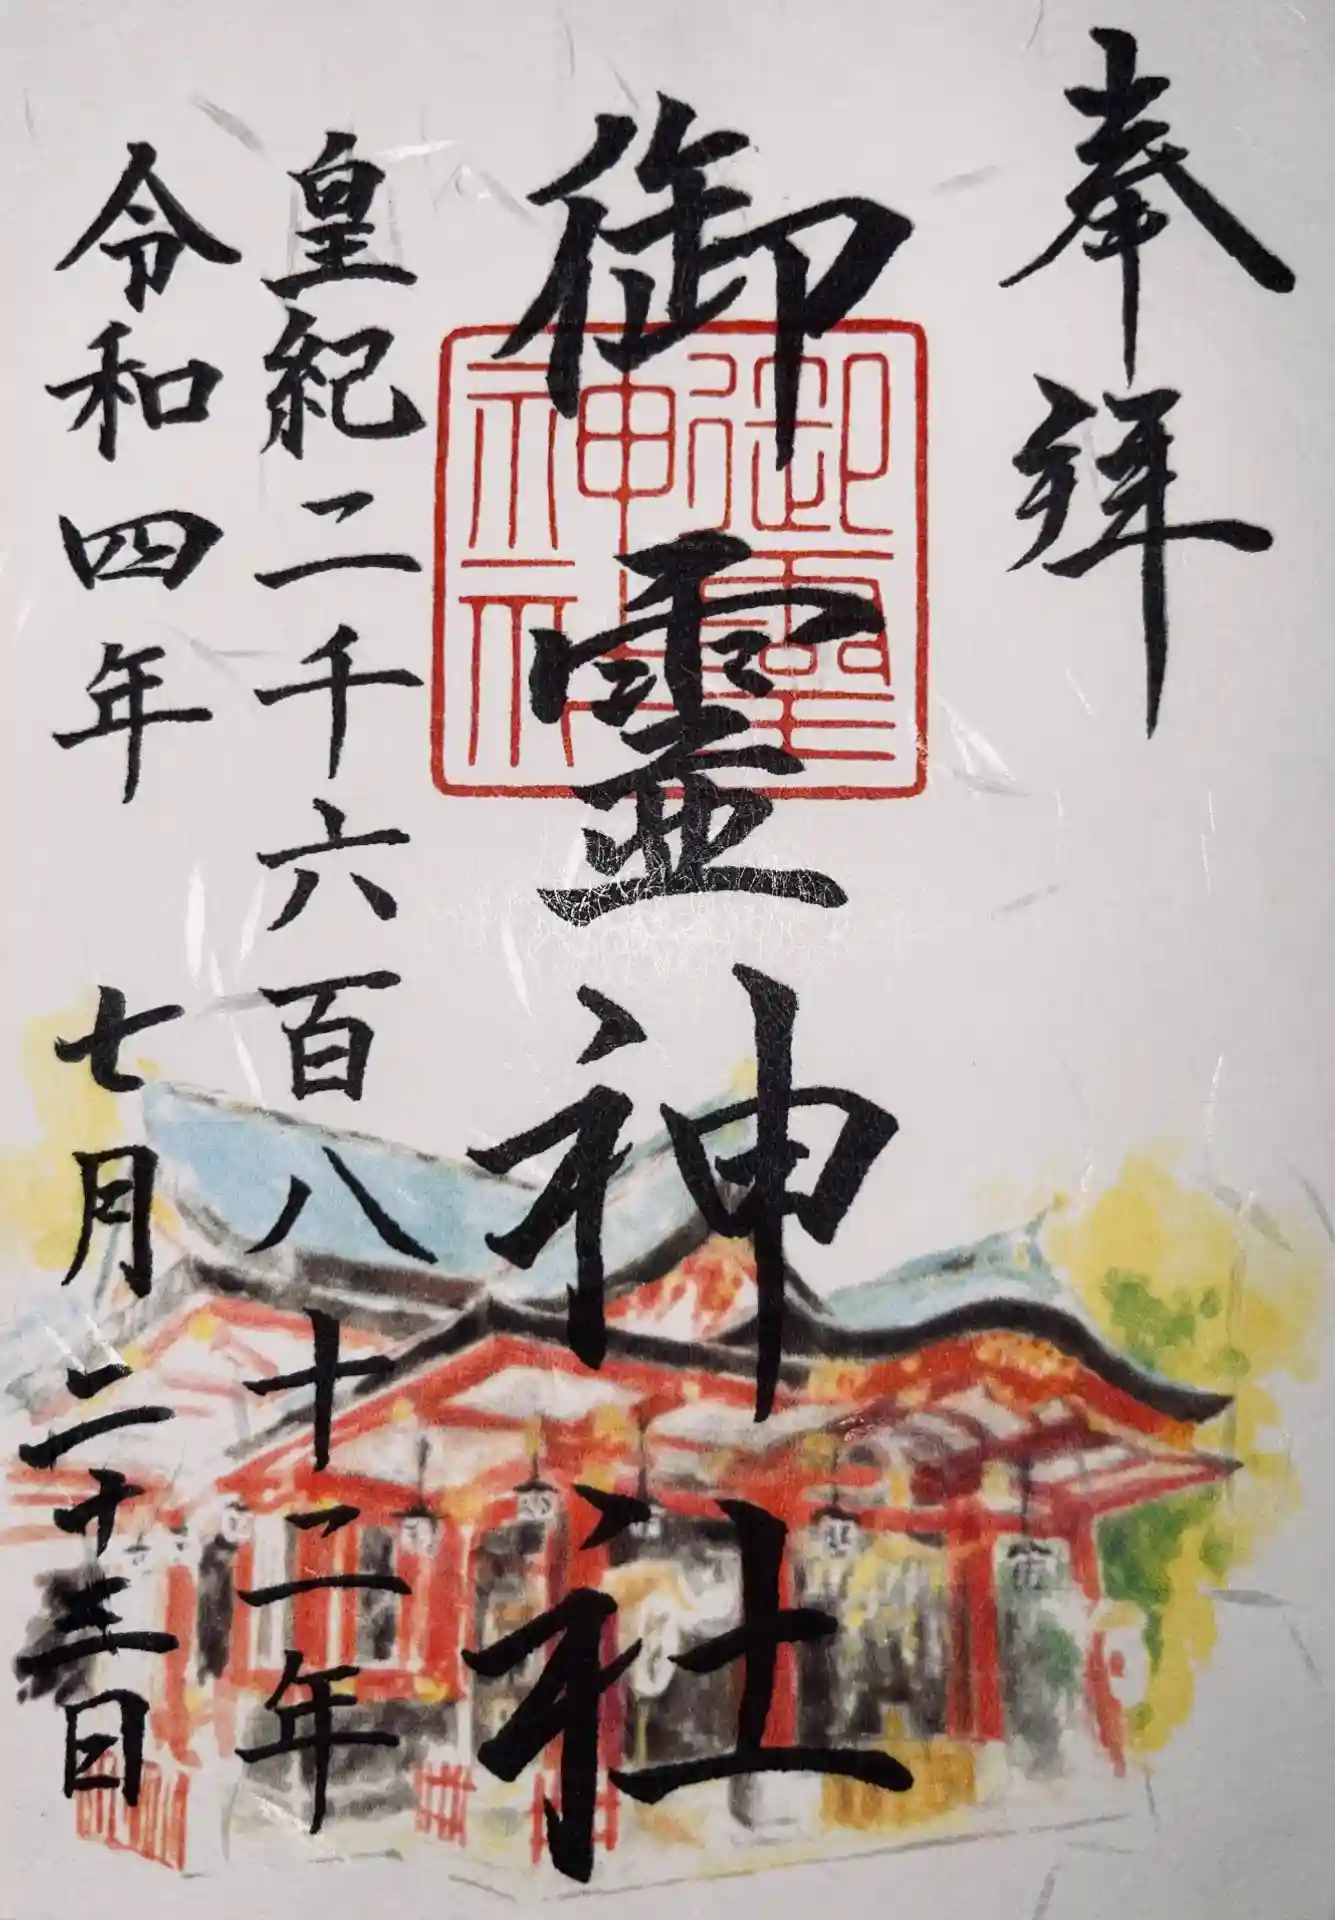 奉拝
御霊神社
御霊神社
皇紀二千六百八十二年
令和四年 七月二十三日